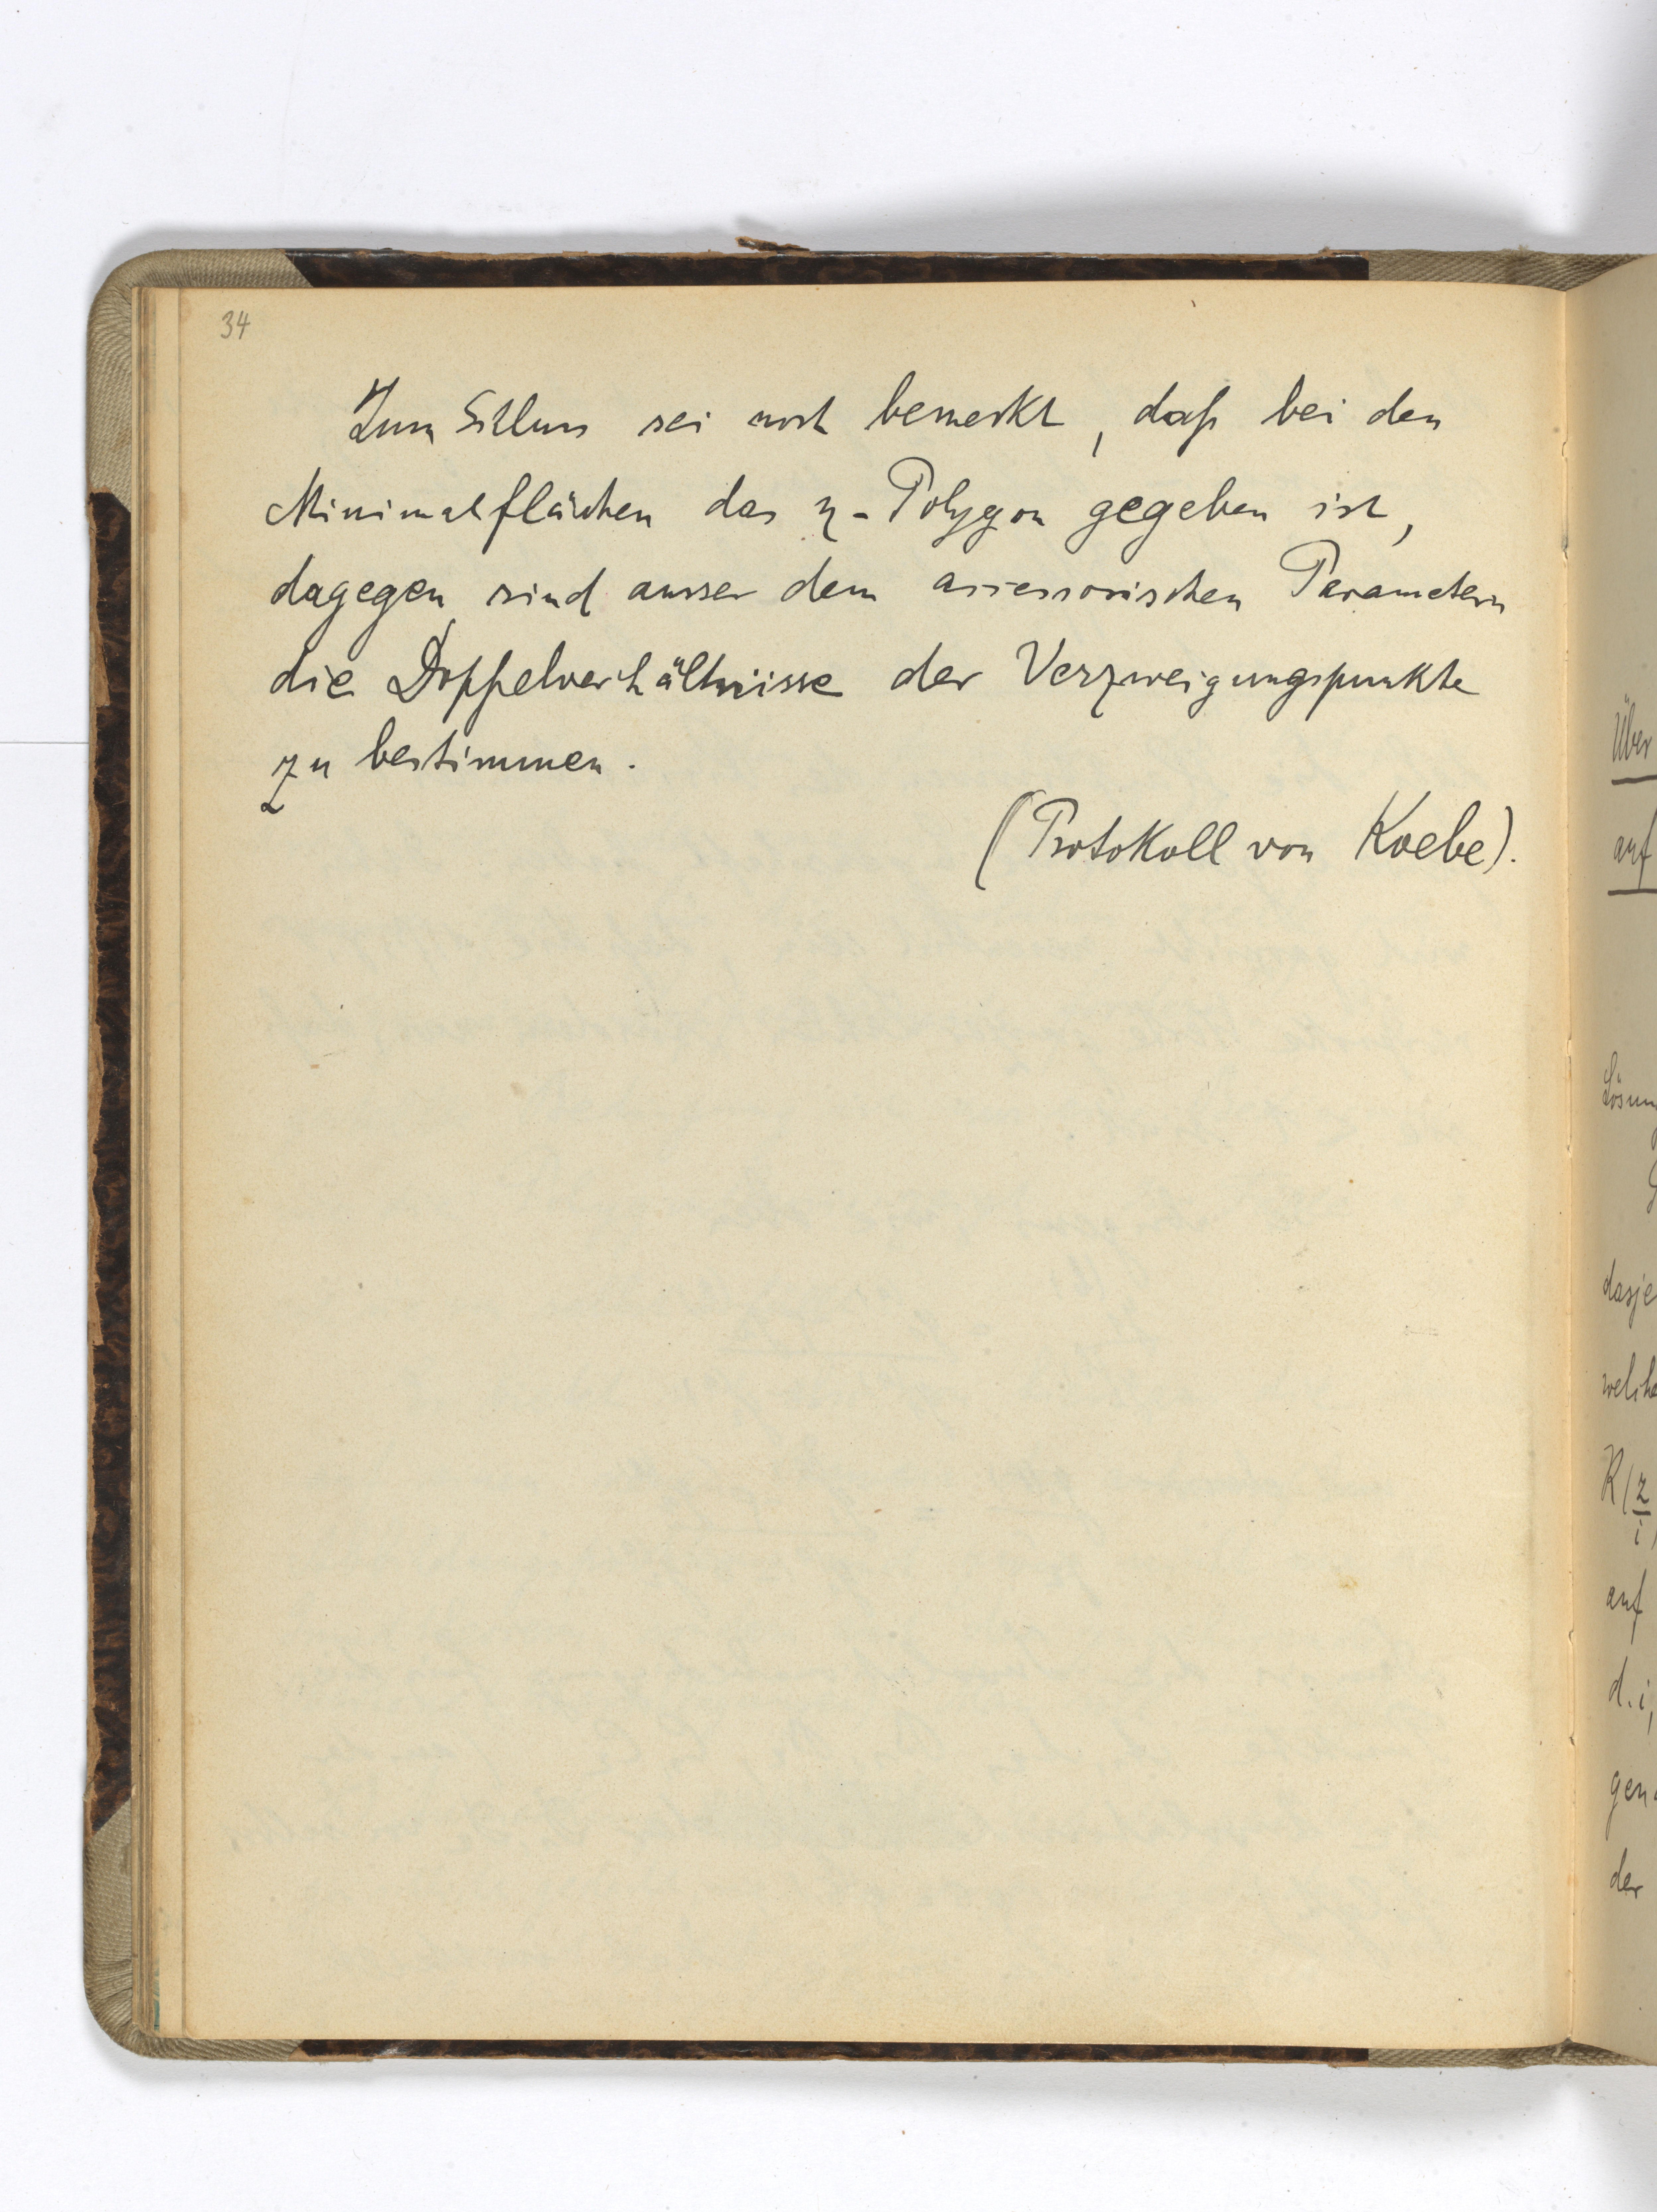 34
Zum Schluss sei noch bemerkt, daß bei den
Minimalflächen das η-Polygon gegeben ist,
dagegen sind ausser dem accessorischen Parametern
die Doppelverhältnisse der Verzweigungspunkte
zu bestimmen.
(Protokoll von Koebe).
Über
auf
Lösung
dasje
welche
R(z/i)
auf
d. i,
gen
der